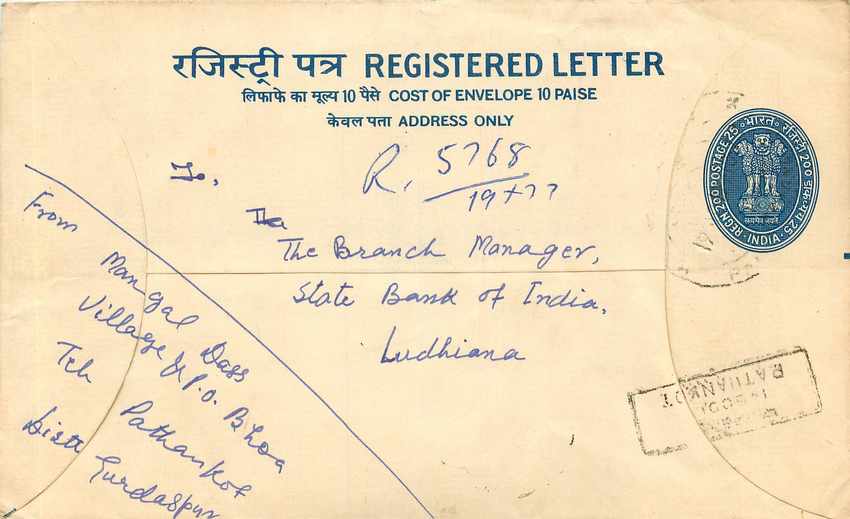 रजिस्ट्री पत्र REGISTERED LETTER
लिफाफे का मूल्य 10 पैसे COST OF ENVELOPE 10 PAISE
केवल पता ADDRESS ONLY
REGN 200 POSTAGE 25 भारत रजिस्ट्री 200 डाक 25
सत्यमेव जयते
INDIA
To,
R. 5768
The Branch Manager,
State Bank of India,
Ludhiana
From
Mangal Dass
Village & P.O. Bhoa
Teh Pathankot
Distt Gurdaspur
PATHANKOT